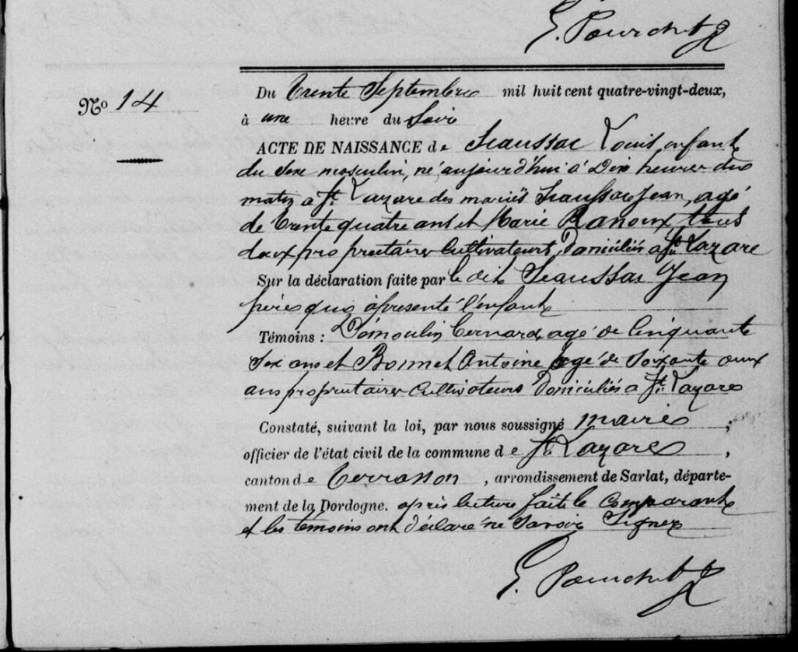 G. Pourchet
No 14
Du trente Septembre mil huit cent quatre-vingt-deux,
à une heure du Soir
ACTE DE NAISSANCE de Louis enfant
du Sexe masculin, né aujourd'hui à Dix heures du
matin à St Lazare des mariés Jean, agé
de trente quatre ans et Marie tous
deux propriétaires Cultivateurs Domiciliés à St Lazare
Sur la déclaration faite par le dit Jean
père qui à présenté l'enfant
Témoins : Bernard agé de Cinquante
Six ans et Bonnet Antoine agé de Soixante
ans propriétaires Cultivateurs Domiciliés à St Lazare
Constaté, suivant la loi, par nous soussigné maire ;
officier de l'état civil de la commune de St Lazare ,
canton de Terrasson , arrondissement de Sarlat, départe-
ment de la Dordogne. après lecture faite le Comparant
et les témoins ont déclaré ne Savoir Signer
G. Pourchet